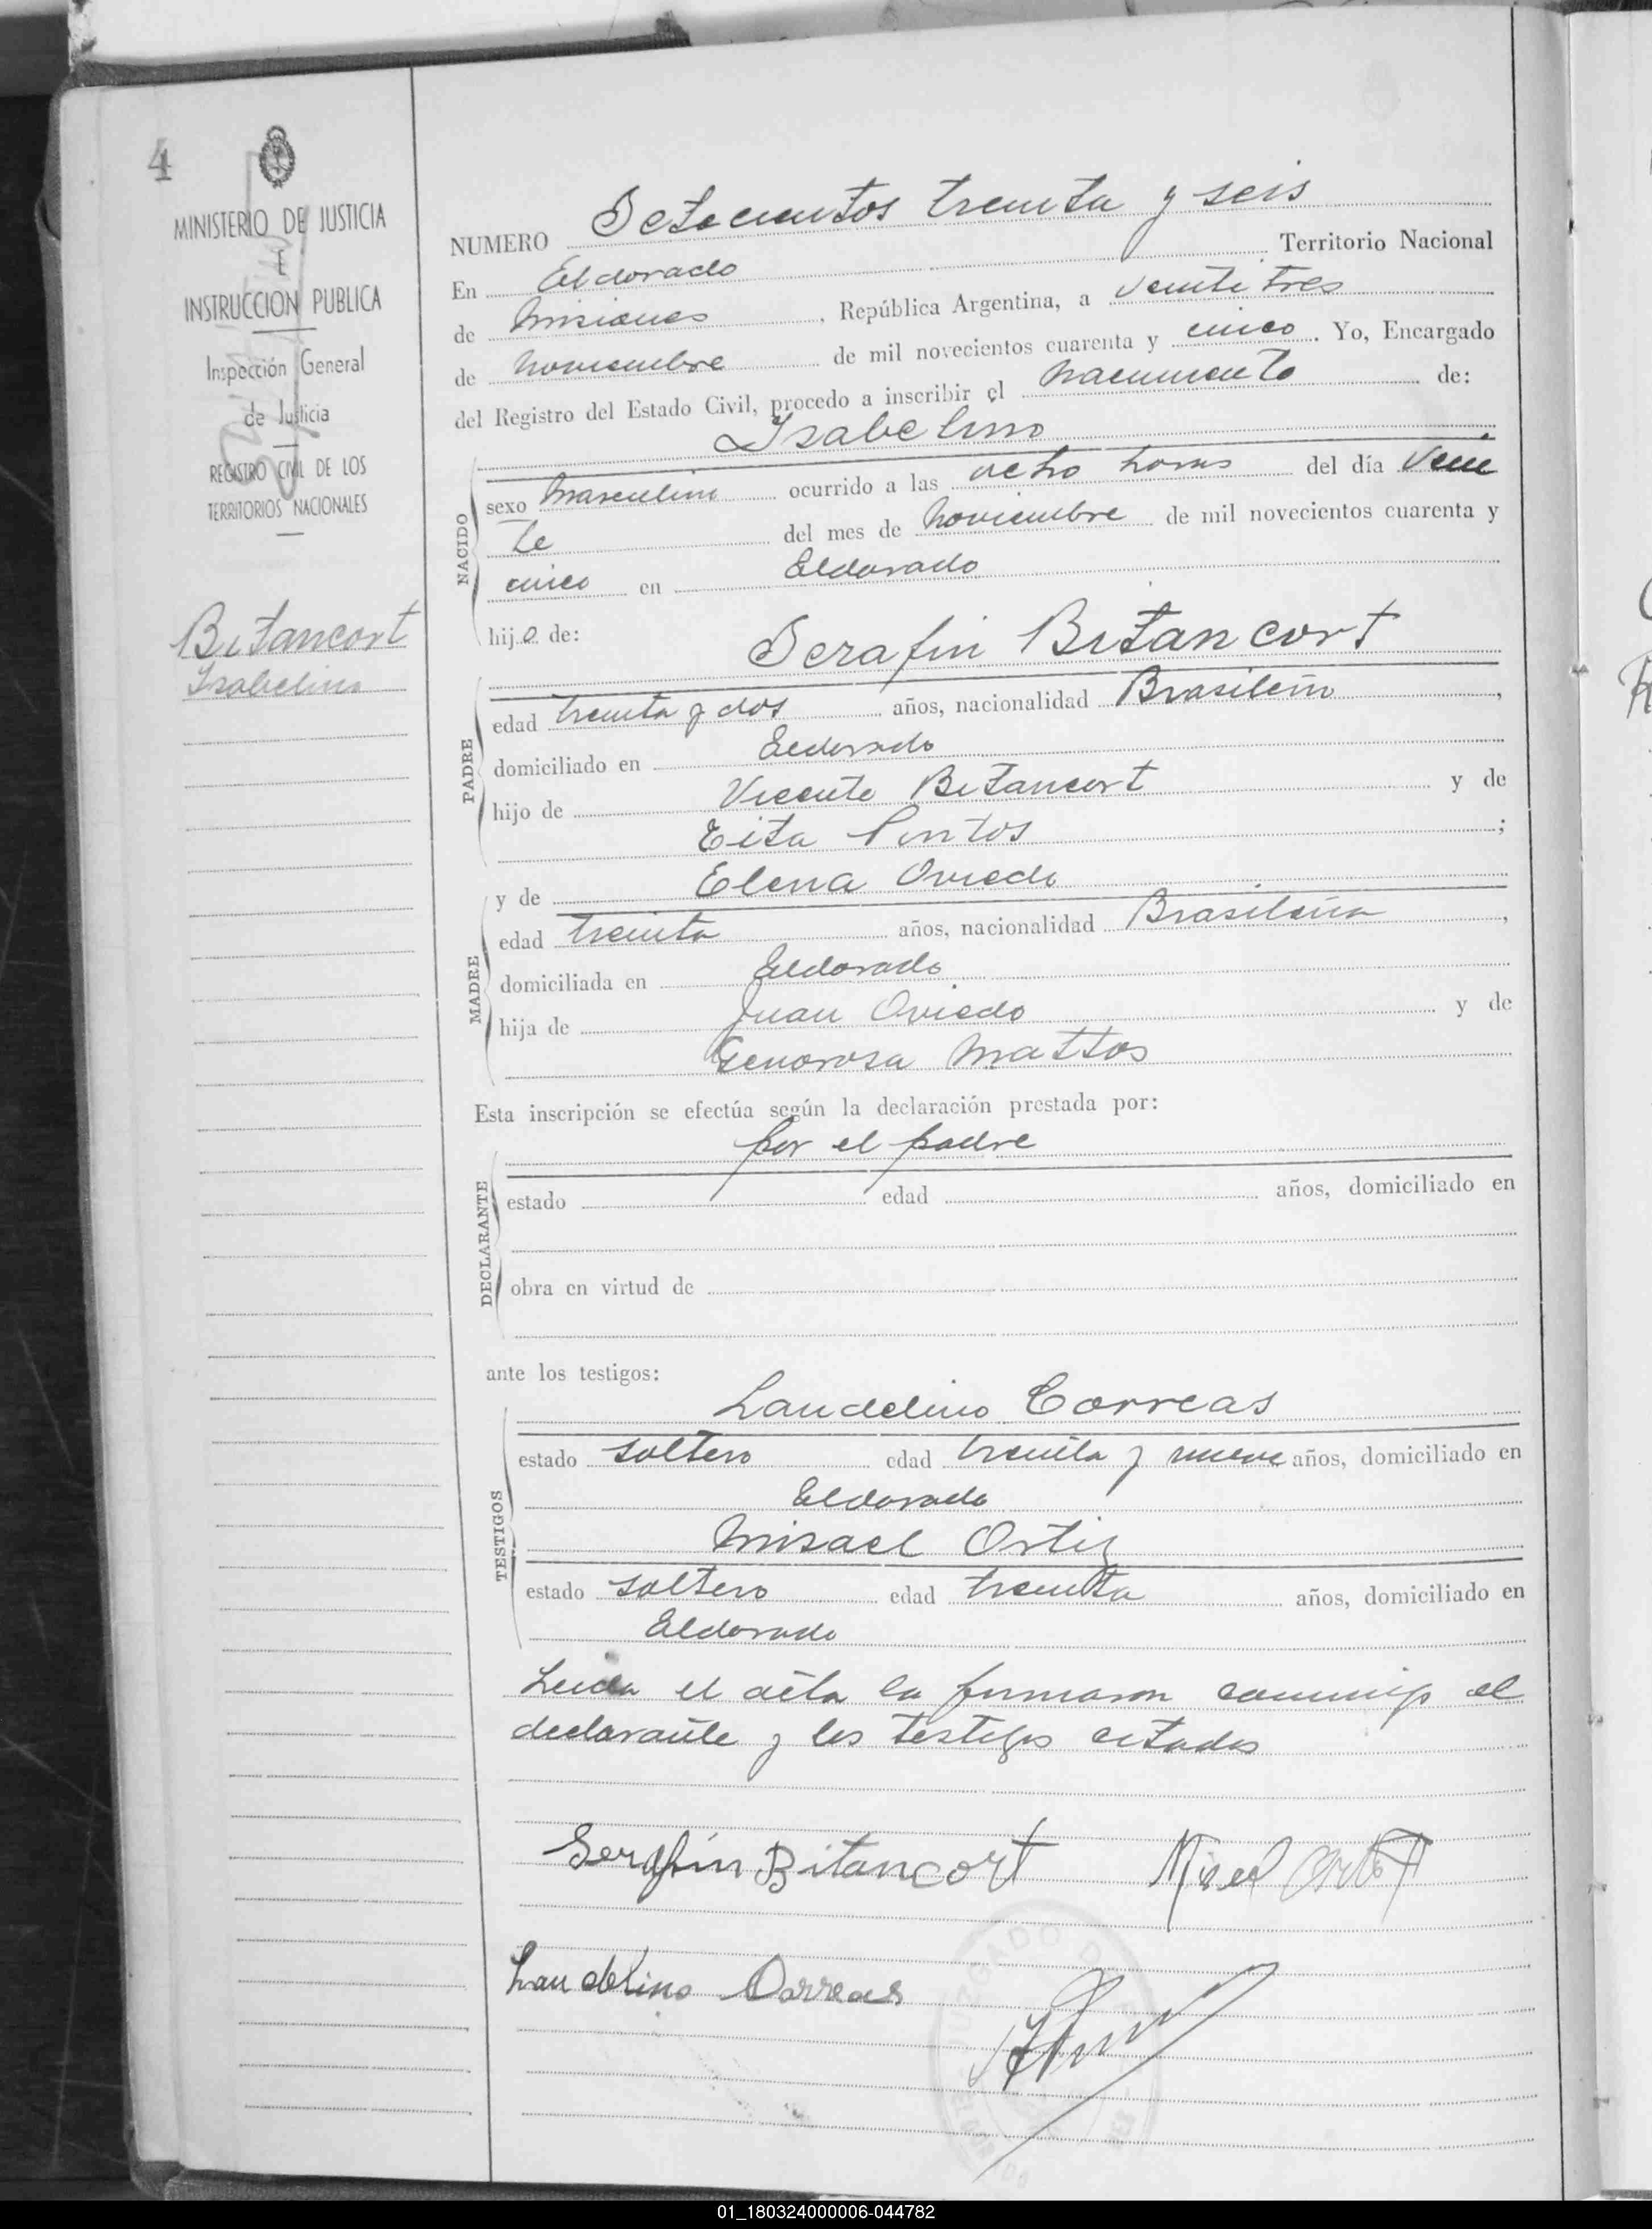 4
MINISTERIO DE JUSTICIA
E
INSTRUCCION PUBLICA
Inspección General
de Justicia
REGISTRO CIVIL DE LOS
TERRITORIOS NACIONALES
Bitancort
Isabelino
NUMERO Setecientos treinta y seis
En Eldorado Territorio Nacional
de Misiones, República Argentina, a veinte tres
de noviembre de mil novecientos cuarenta y cinco. Yo, Encargado
del Registro del Estado Civil, procedo a inscribir el nacimiento de:
Isabelino
NACIDO
sexo masculino ocurrido a las ocho horas del día vein
te del mes de noviembre de mil novecientos cuarenta y
cinco en Eldorado
hijo de: Serafin Bitancort
PADRE
edad treinta y dos años, nacionalidad Brasileño,
domiciliado en Eldorado
hijo de Vicente Bitancort y de
Pintos;
y de Elena Oviedo
MADRE
edad treinta años, nacionalidad Brasileña,
domiciliada en Eldorado
hija de Juan Oviedo y de
Genorosa Mattos
Esta inscripción se efectúa según la declaración prestada por:
por el padre
DECLARANTE
estado edad años, domiciliado en
obra en virtud de
ante los testigos:
Laudelino Correas
TESTIGOS
estado soltero edad treinta y nueve años, domiciliado en
Eldorado
Misael Ortiz
estado soltero edad treinta años, domiciliado en
Eldorado
Leida el acta la firmaron conmigo el
declarante y los testigos citados
Serafin Bitancort
Laudelino Correas
01_180324000006-044782